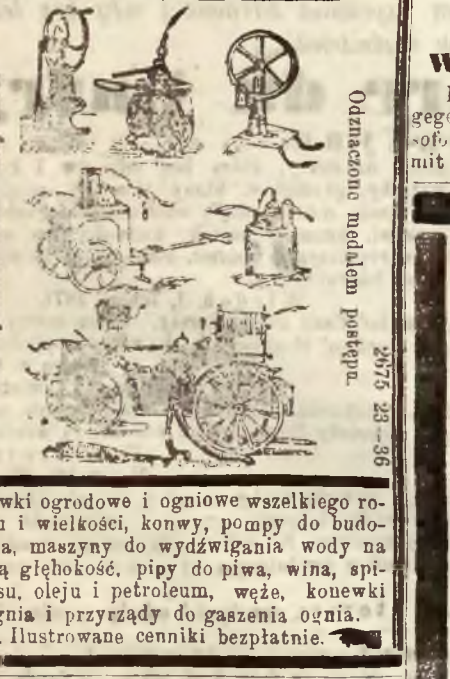 Odznaczone medalem postępu.
2675 23—36
wki ogrodowe i ogniowe wszelkiego ro-
u i wielkości, konwy, pompy do budo-
a, maszyny do wydźwigania wody na
ą głęhokość, pipy do piwa, wina, spi-
su, oleju i petroleum, węże, konewki
gnia i przyrządy do gaszenia ognia.
. Ilustrowane cenniki bezpłatnie.
W
gege
mit